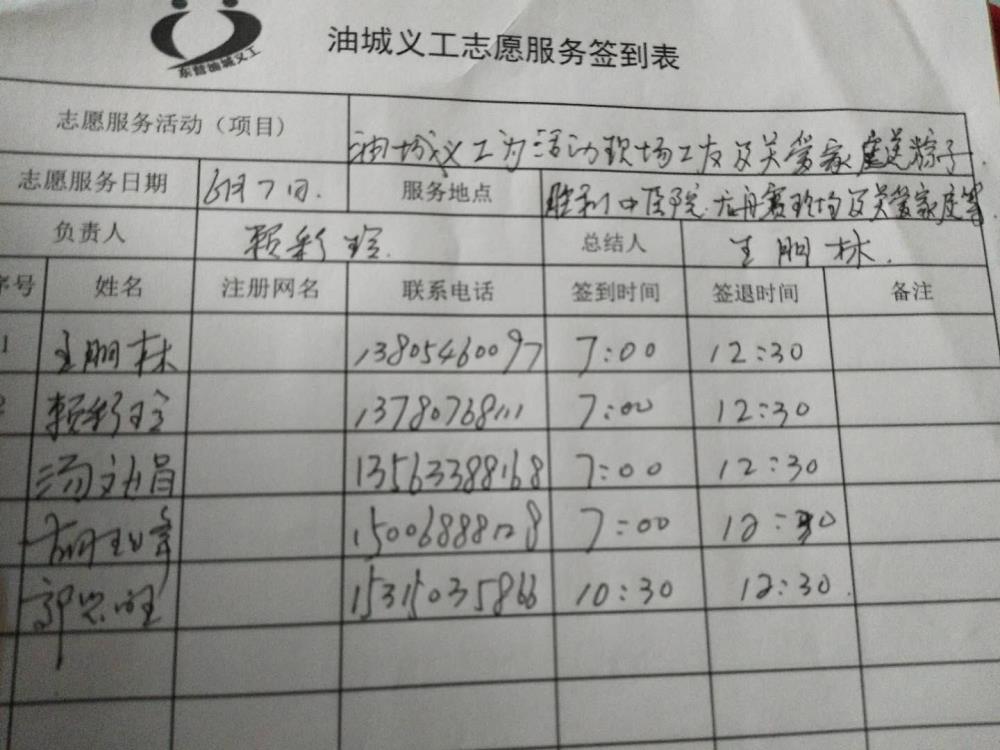 东营油城义工
油城义工志愿服务签到表
志愿服务活动（项目） 油城义工为活动职场工友及关爱家庭送粽子
志愿服务日期 6月7日. 服务地点 胜利中医院.龙舟赛现场及关爱家庭等
负责人 赖彩玲 总结人 王朋林.
序号 姓名 注册网名 联系电话 签到时间 签退时间 备注
1 王朋林 13805460097 7:00 12:30
2 赖彩玲 13780768111 7:00 12:30
汤文昌 13563388168 7:00 12:30
胡 15006888128 7:00 12:30
郭 15315035866 10:30 12:30